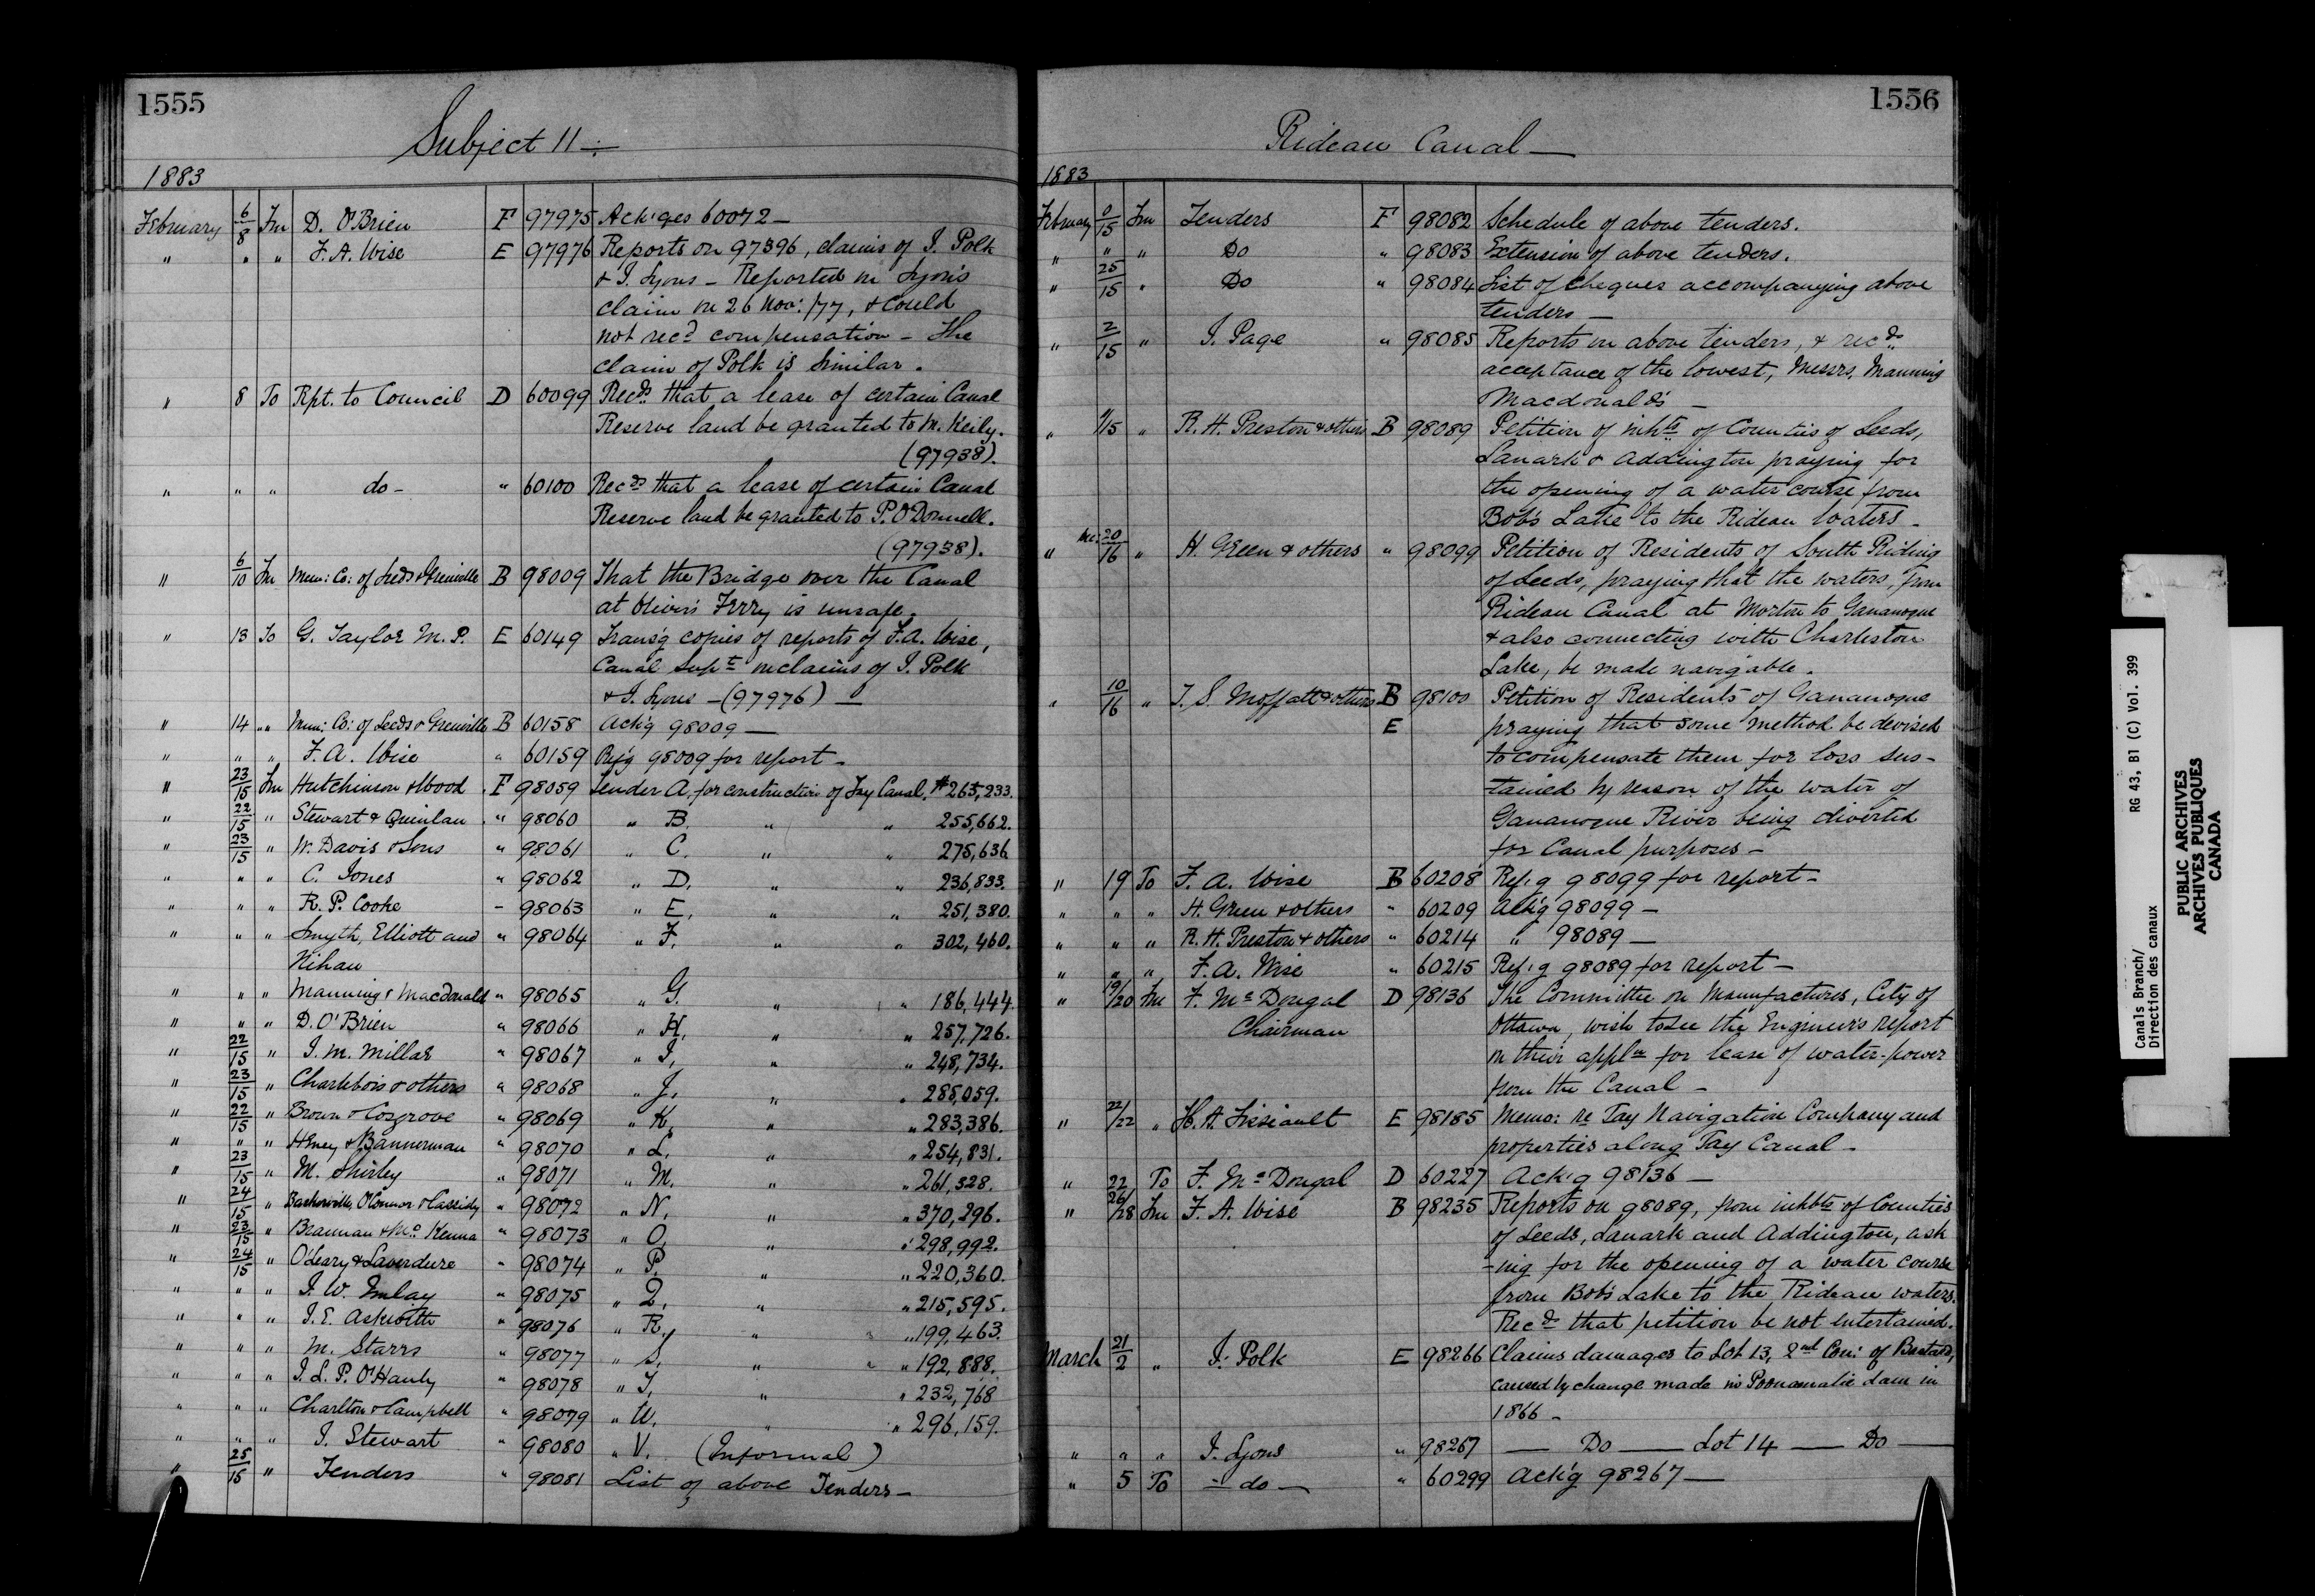 1555
Subject 11 —
1883
February 6/8 Fm D. O'Brien F 97975 Ack'ges 60072 —
" " " F. A. Wise E 97976 Reports on 97396, claims of J. Polk
& J. Lyons — Reported on Lyons
claim on 26 Nov: /77, & could
not recd compensation — The
claim of Polk is similar.
" 8 To Rpt. to Council D 60099 Recds that a lease of certain Canal
Reserve land be granted to M. Keily.
(97938).
" " " do - " 60100 Recds that a lease of certain Canal
Reserve land be granted to P. O'Donnell.
(97938).
" 6/10 Fm Mun: Co: of Leeds & Grenville B 98009 That the Bridge over the Canal
at Oliver's Ferry is unsafe.
" 13 To G. Taylor M. P. E 60149 Trans'g copies of reports of F. A. Wise,
Canal Supt on claims of J. Polk
& J. Lyons — (97976) —
" 14 " Mun: Co: of Leeds & Grenville B 60158 Ack'g 98009 —
" " " F. A. Wise " 60159 Ref'g 98009 for report —
" 23/15 Fm Hutchinson & Wood F 98059 Tender A, for construction of Tay Canal. $265,233.
" 22/15 " Stewart & Quinlan " 98060 " B. " " 255,662.
" 23/15 " W. Davis & Sons " 98061 " C. " " 275,636
" " " C. Jones " 98062 " D. " " 236,833.
" " " R. P. Cooke - 98063 " E, " " 251,380.
" " " Smyth, Elliott and " 98064 " F, " " 302,460.
Nihan
" " " Manning & Macdonald " 98065 " G. " " 186,444.
" " " D. O'Brien " 98066 " H, " " 257,726.
" 22/15 " J. M. Millar " 98067 " I, " " 248,734.
" 23/15 " Charlebois & others " 98068 " J, " " 285,059.
" 22/15 " Brown & Cosgrove " 98069 " K, " " 283,386.
" " " Heney & Bannerman " 98070 " L, " " 254,831.
" 23/15 " M. Shirley " 98071 " M. " " 261,528.
" 24/15 " Baskerville, O'Connor & Cassidy " 98072 " N, " " 370,296.
" 23/15 " Brannan & Mc Kenna " 98073 " O, " " 298,992.
" 24/15 " O'Leary & Laverdure " 98074 " P. " " 220,360.
" " " J. W. Imlay " 98075 " Q, " " 215,595.
" " " J. E. Askwith " 98076 " R, " " 199,463.
" " " M. Starrs " 98077 " S, " " 192,888.
" " " J. L. P. O'Hanly " 98078 " T, " " 232,768
" " " Charlton & Campbell " 98079 " U, " " 296,159.
" " " J. Stewart " 98080 " V. (Informal)
" 25/15 " Tenders " 98081 List of above Tenders —
1556
Rideau Canal —
1883
February 0/15 Fm Tenders F 98082 Schedule of above tenders.
" " " Do " 98083 Extension of above tenders.
" 25/15 " Do " 98084 List of cheques accompanying above
tenders —
" 2/15 " J. Page " 98085 Reports on above tenders, & recds
acceptance of the lowest, Messrs. Manning
Macdonald's —
" 1/15 " R. H. Preston & others B 98089 Petition of inhts of Counties of Leeds,
Lanark & Addington praying for
the opening of a water course from
Bob's Lake to the Rideau waters —
" 20/16 " H. Green & others " 98099 Petition of Residents of South Riding
of Leeds, praying that the waters, from
Rideau Canal at Morton to Gananoque
& also connecting with Charleston
Lake, be made navigable.
" 10/16 " T. S. Moffatt & others B 98100 Petition of Residents of Gananoque
E praying that some method be devised
to compensate them for loss sus-
-tained by reason of the water of
Gananoque River being diverted
for Canal purposes —
" 19 To F. A. Wise B 60208 Ref'g 98099 for report —
" " " H. Green & others " 60209 Ack'g 98099 —
" " " R. H. Preston & others " 60214 " 98089 —
" " " F. A. Wise " 60215 Ref'g 98089 for report —
" 19/20 Fm F. Mc Dougal D 98136 The Committee on Manufactures, City of
Chairman Ottawa, wish to see the Engineer's report
on their appln for lease of water-power
from the Canal —
" 22/22 " H. A. Lisiault E 98185 Memo: re Tay Navigation Company and
properties along Tay Canal —
" 22 To F. Mc Dougal D 60227 Ack'g 98136 —
" 26/28 Fm F. A. Wise B 98235 Reports on 98089, from inhbts of Counties
of Leeds, Lanark and Addington, ask
-ing for the opening of a water course
from Bob's Lake to the Rideau waters.
Recds that petition be not entertained.
March 21/2 " J. Polk E 98266 Claims damages to Lot 13, 2nd Con: of Bastard,
caused by change made in Poonamalie dam in
1866 —
" " " J. Lyons " 98267 — Do — Lot 14 — Do —
" 5 To — do — " 60299 Ack'g 98267 —
Canals Branch/
Direction des canaux
RG 43, B1 (C) Vol. 399
PUBLIC ARCHIVES
ARCHIVES PUBLIQUES
CANADA